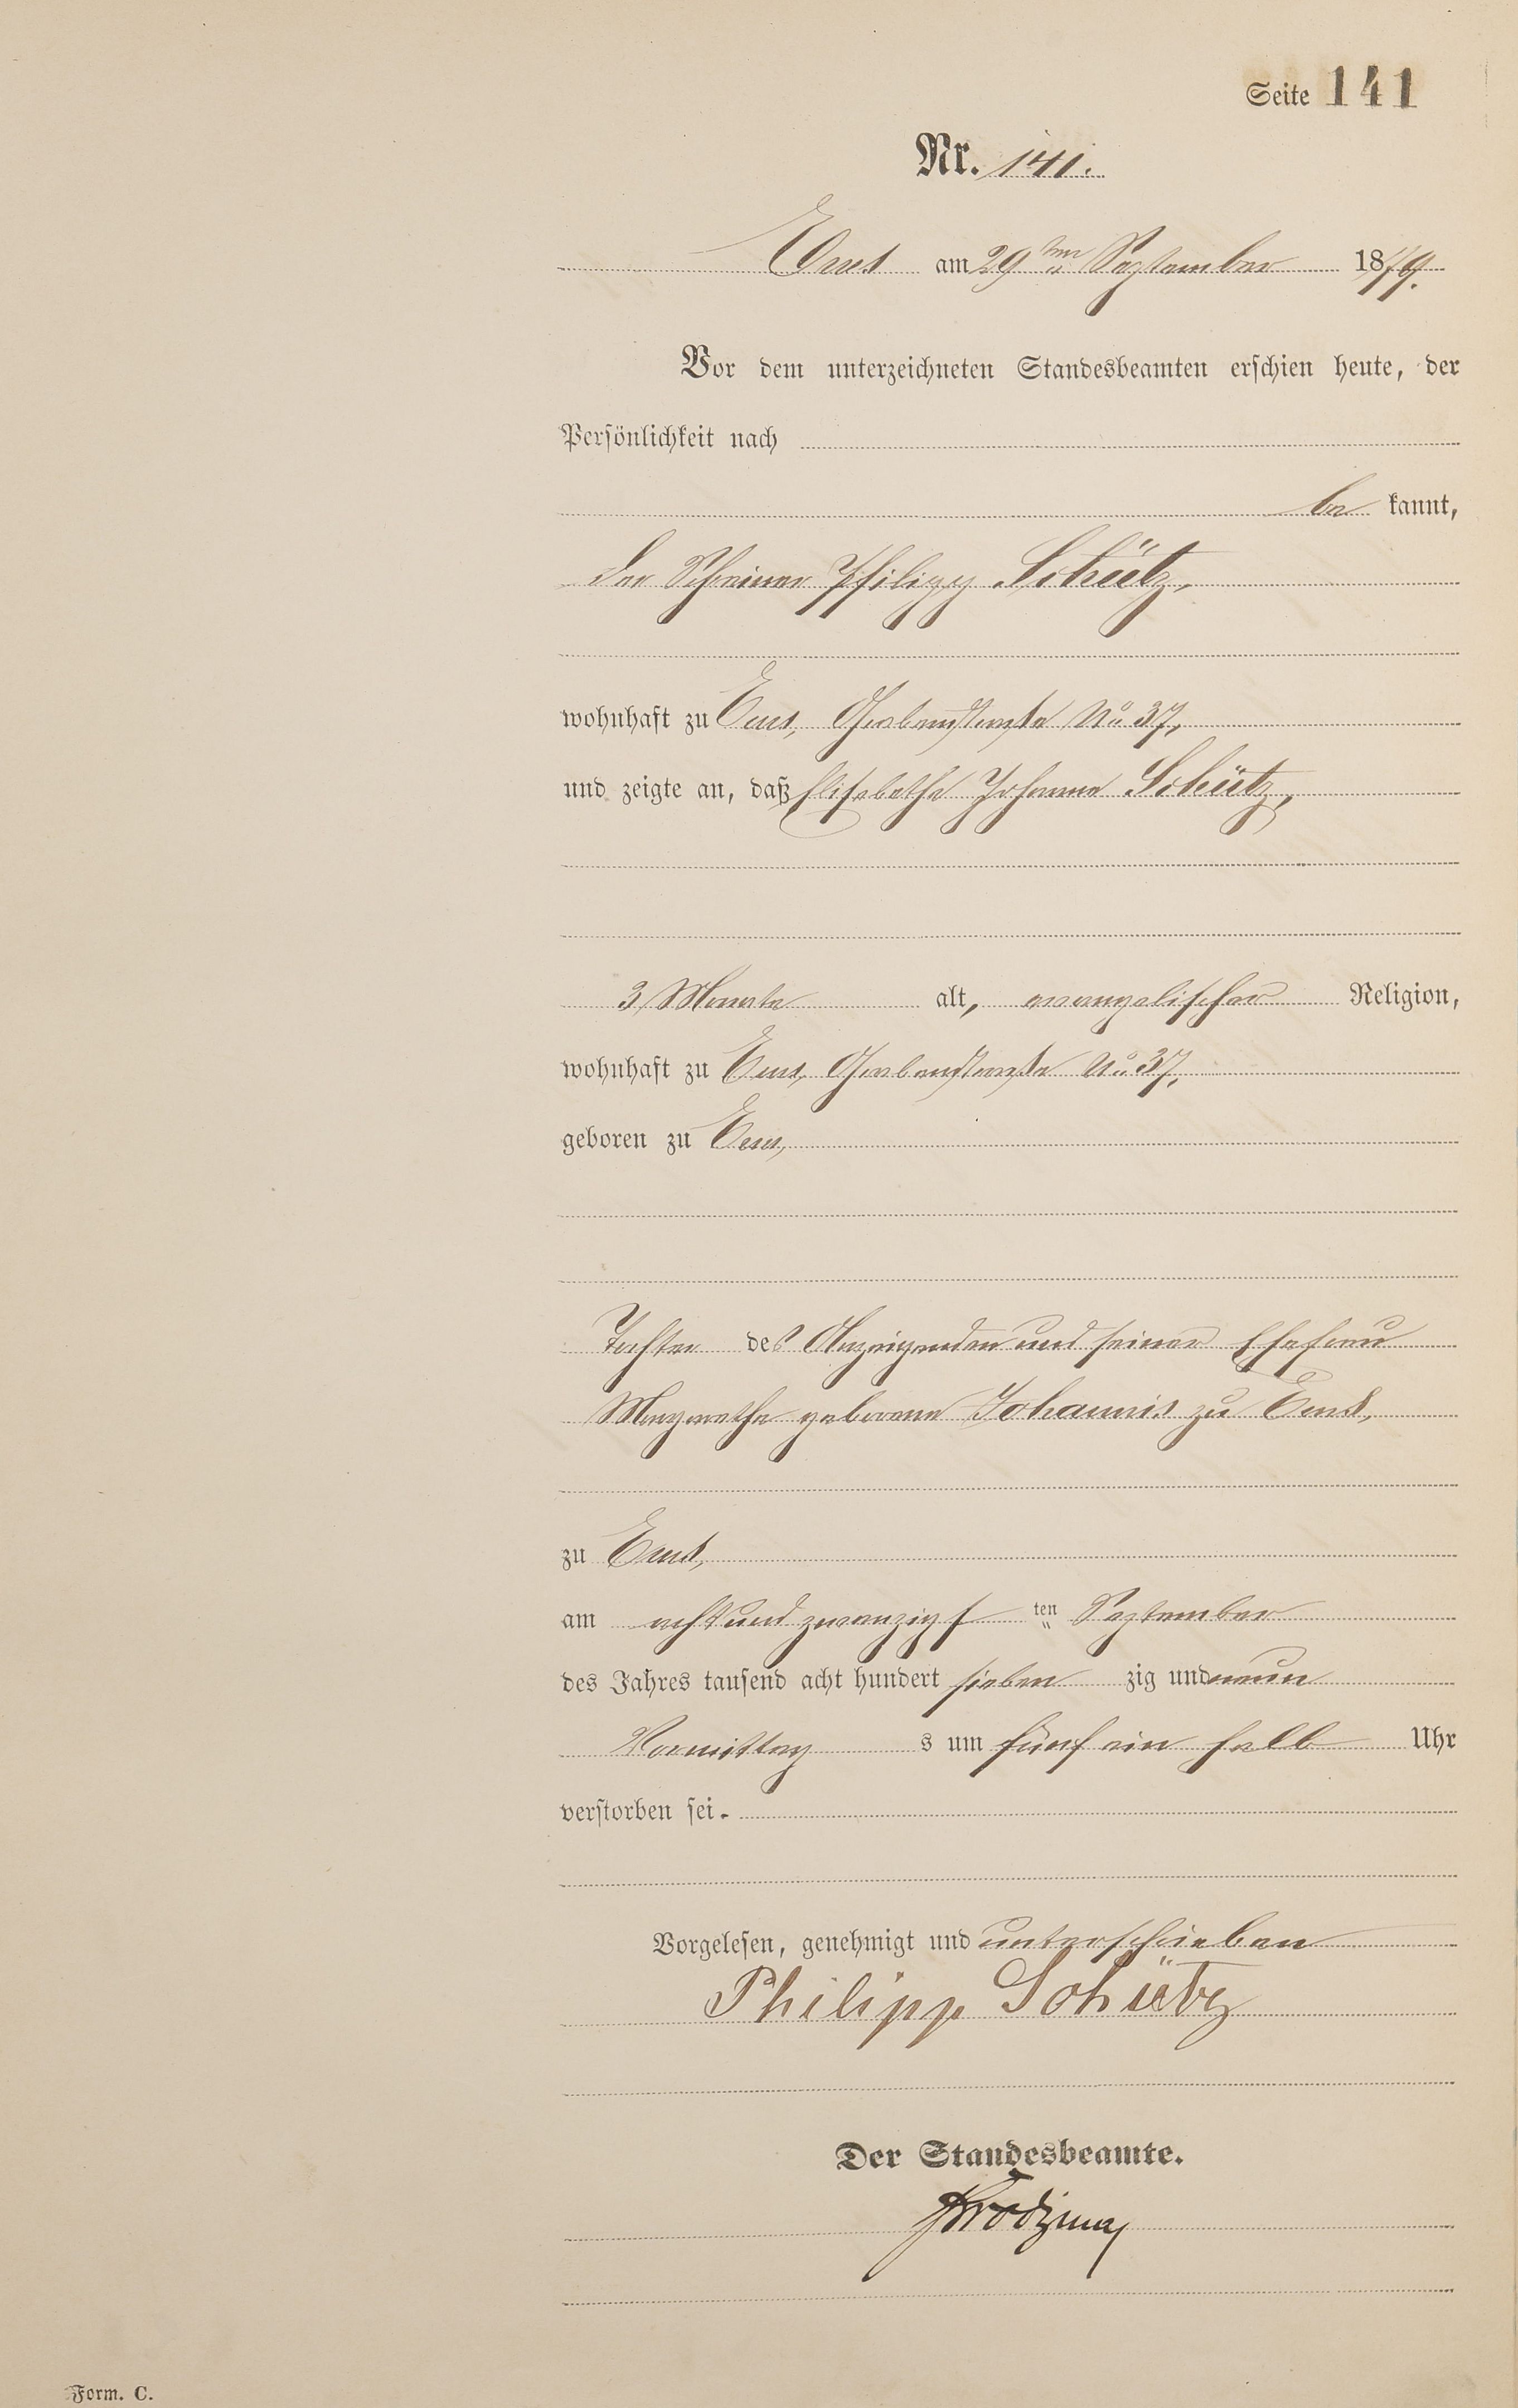 Seite 141
Nr. 141.
Ems am 29ten September 1879.
Vor dem unterzeichneten Standesbeamten erschien heute, der
Persönlichkeit nach
be kannt,
der Schreiner Philipp Schütz,
wohnhaft zu Ems, Grabenstraße No 37,
und zeigte an, daß Elisabethe Johanna Schütz,
3 Monate alt, evangelischer Religion,
wohnhaft zu Ems, Grabenstraße No 37,
geboren zu Ems,
Tochter des Anzeigenden und seiner Ehefrau
Margarethe geborene Johannis zu Ems,
zu Ems,
am acht und zwanzigsten September
des Jahres tausend acht hundert sieben zig und neun
Vormittag s um fünf ein halb Uhr
verstorben sei.
Vorgelesen, genehmigt und unterschrieben
Philipp Schütz
Der Standesbeamte.
Form. C.